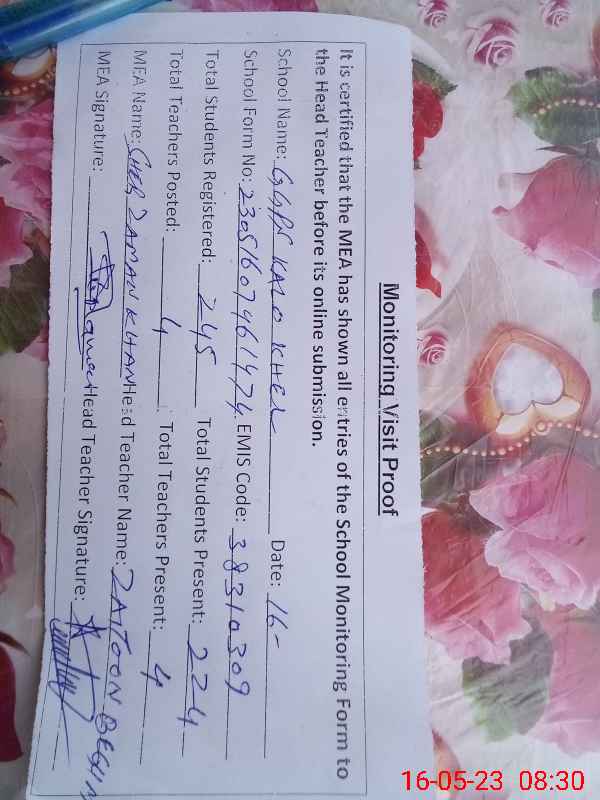 Monitoring Visit Proof
It is certified that the MEA has shown all entries of the School Monitoring Form to
the Head Teacher before its online submission.
School Name: GGPS KALO KHEL Date: 16-
School Form No: 23051607461474. EMIS Code: 38310309
Total Students Registered: 245 Total Students Present: 224
Total Teachers Posted: 4. Total Teachers Present: 4
MEA Name: SHER ZAMAN KHAN Head Teacher Name: ZAITOON BEGUM
MEA Signature: Head Teacher Signature:
16-05-23 08:30